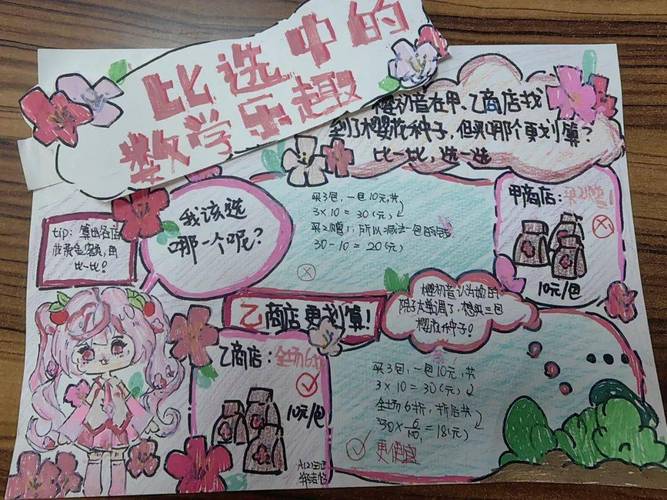 比选中的
数学乐趣
樱初音在甲、乙商店找
到了樱花种子,但买哪个更划算?
比一比,选一选
我该选
哪一个呢?
买3包,一包10元,共
3×10=30(元)
买2赠1,所以减去一包的钱
30-10=20(元)
甲商店:买2赠1
10元/包
tip:算出各店
比一比?
乙商店更划算!
樱初音认为她的
院子太单调了,想买三包
樱花种子!
乙商店:全场6折
10元/包
买3包,一包10元,共
3×10=30(元)
全场6折,折后共
30×6/10=18(元)
更便宜